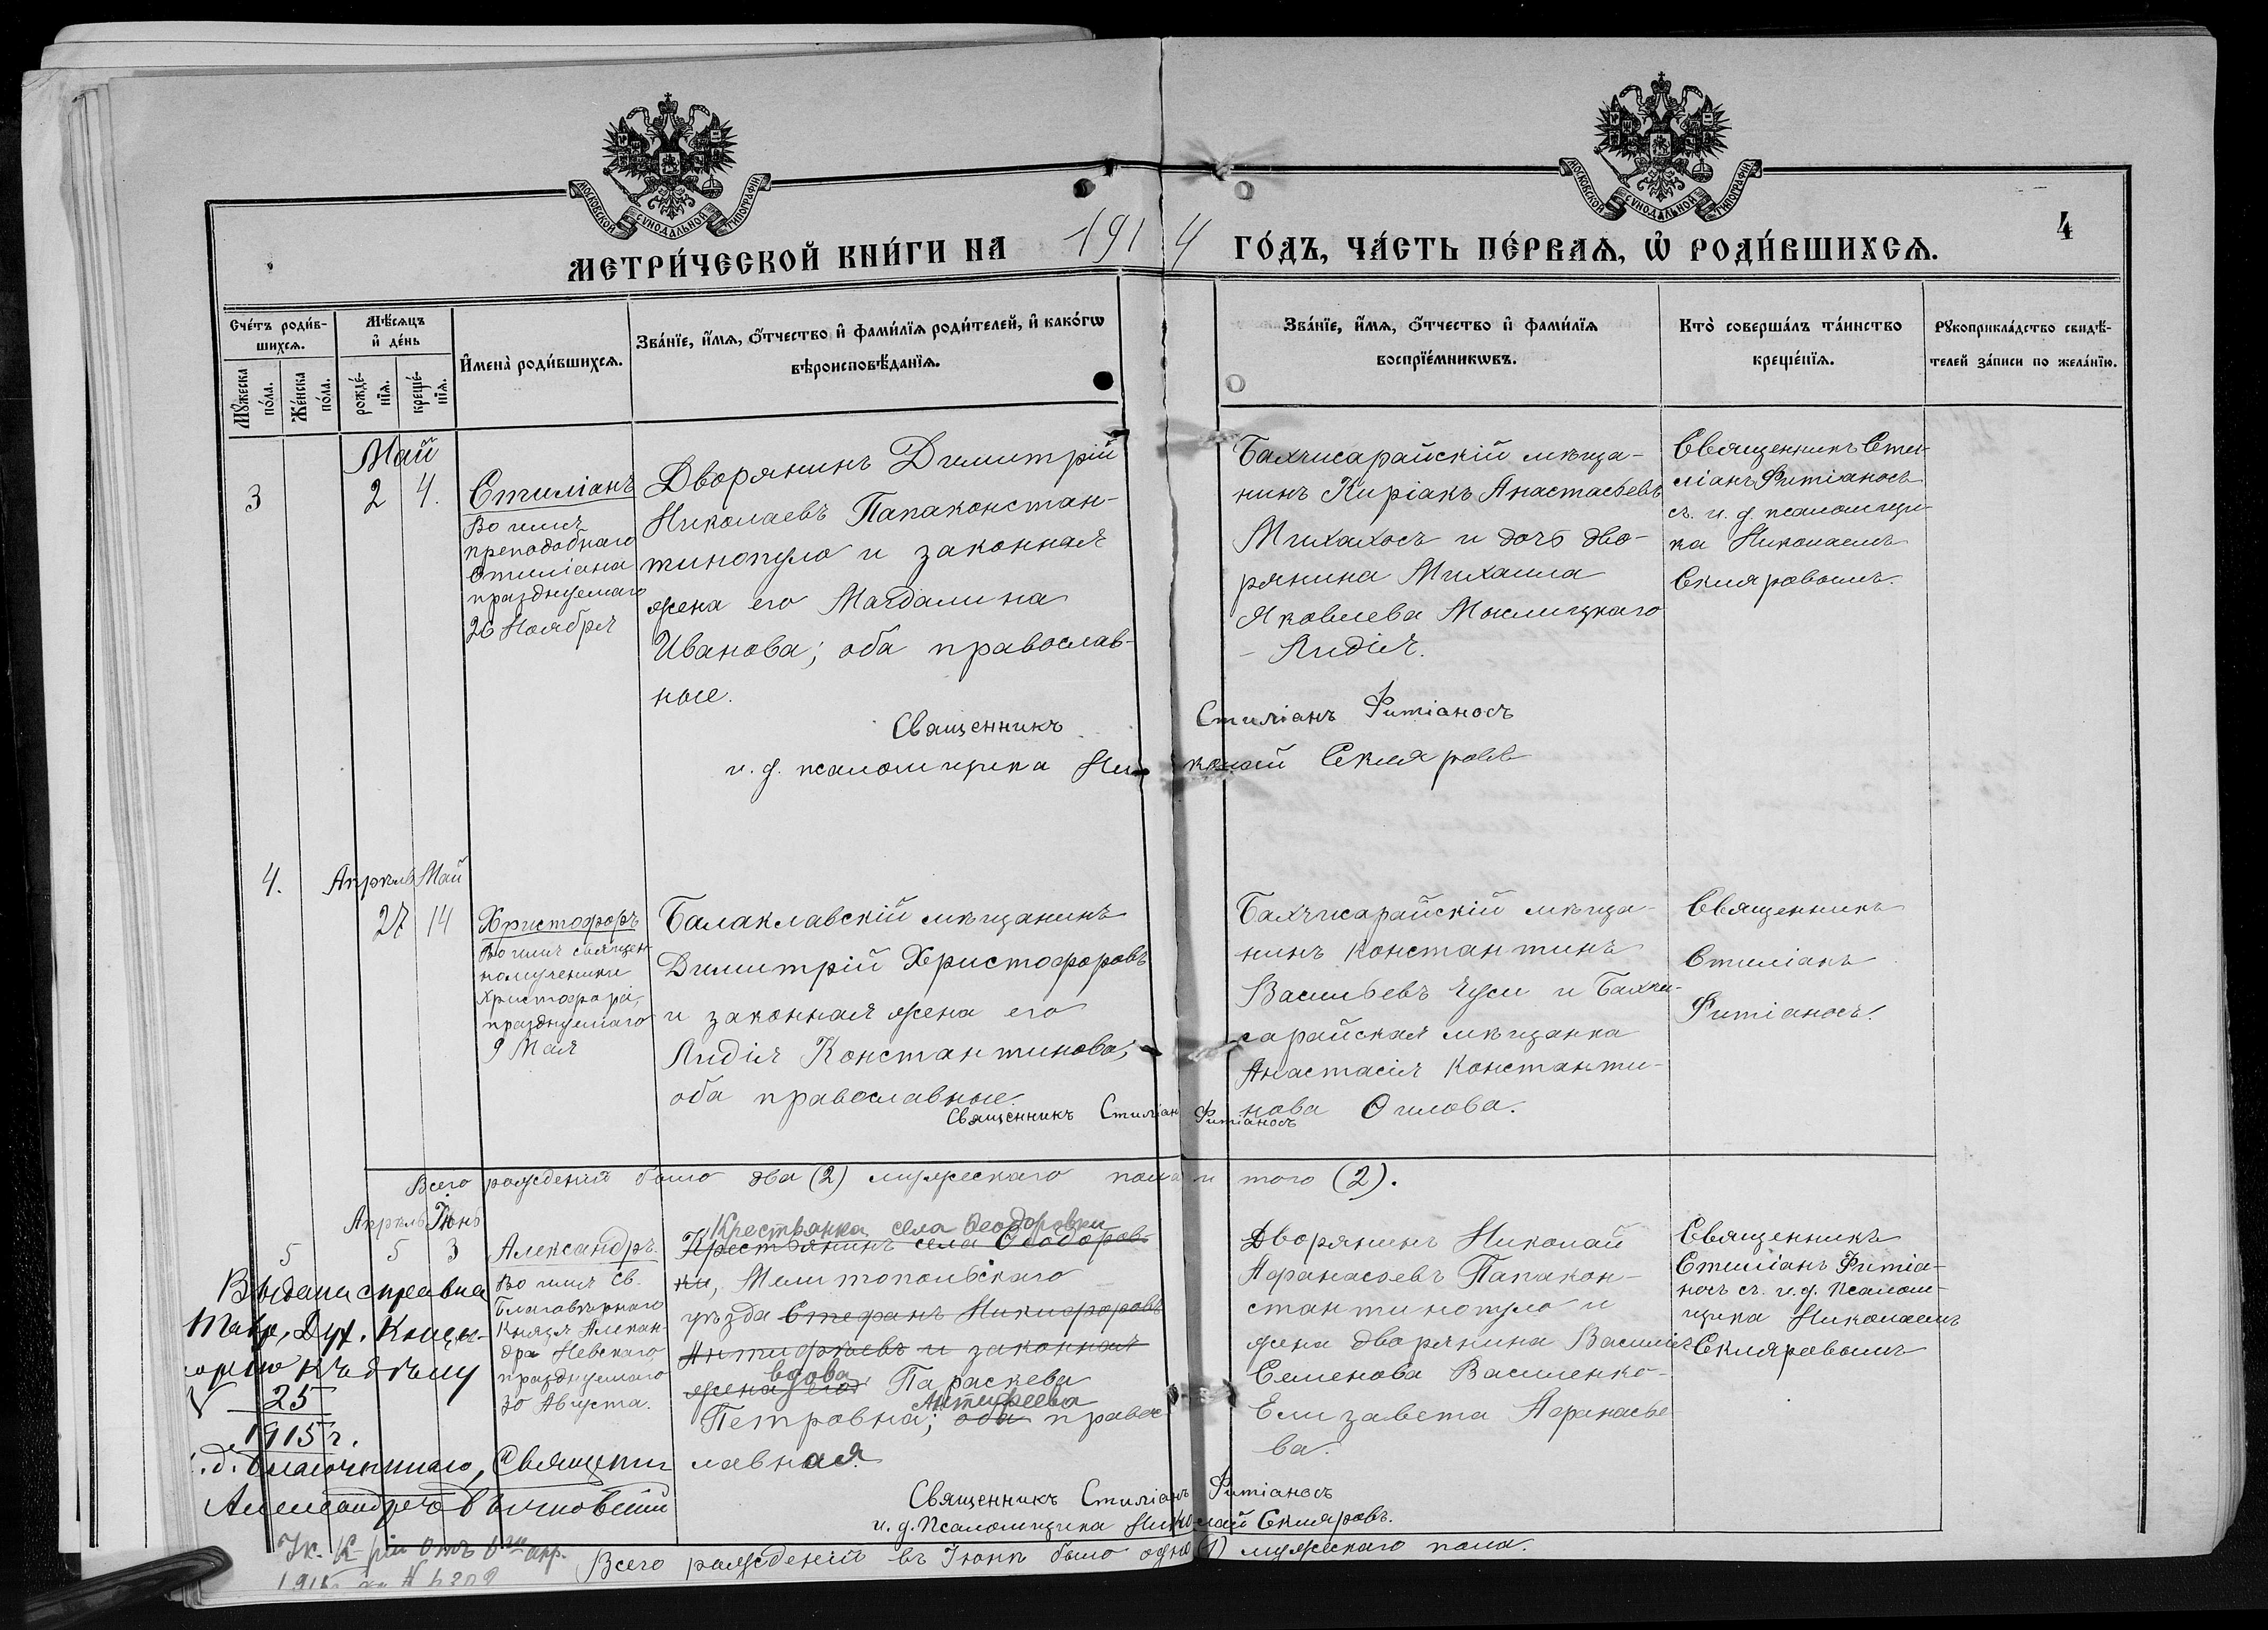 МОСКОВСКОЙ СѴНОДАЛЬНОЙ ТИПОГРАФІИ
МОСКОВСКОЙ СѴНОДАЛЬНОЙ ТИПОГРАФІИ
МЕТРИ́ЧЕСКОЙ КНИ́ГИ НА 1914 ГО́ДЪ, ЧА́СТЬ ПЕ́РВАѦ, Ѡ҆ РОДИ́ВШИХСѦ.
4
Сче́тъ роди́в-
шихсѧ.
Мꙋ́жеска
по́ла.
Же́нска
по́ла.
Мѣ́сѧцъ
и҆ де́нь
рожде́-
нїѧ.
креще́-
нїѧ.
И҆мена̀ роди́вшихсѧ.
Зва́нїе, и҆́мѧ, ѻ҆́тчество и҆ фами́лїѧ роди́телей, и҆ како́гѡ
вѣроисповѣ́данїѧ.
Зва́нїе, и҆́мѧ, ѻ҆́тчество и҆ фами́лїѧ
воспрїе́мникѡвъ.
Кто̀ соверша́лъ та́инство
креще́нїѧ.
Рꙋкоприкла́дство свидѣ́-
телей за́писи по жела́нїю.
Май
3
2
4.
Стиліанъ
Во имя
преподобнаго
Стиліана
празднуемаго
26 Ноября
Дворянинъ Димитрій
Николаевъ Папаконстан-
тинопуло и законная
жена его Магдалина
Иванова; оба православ-
ные.
Бахчисарайскій мѣща-
нинъ Киріакъ Анастасьевъ
Михахосъ и дочь дво-
рянина Михаила
Яковлева Мыслицкаго
- Лидія.
Священникъ Сти-
ліанъ Фитіаносъ
съ и. д. псаломщи-
ка Николаемъ
Скляровымъ.
Священникъ Стиліанъ Фитіаносъ
и. д. псаломщика Николай Скляровъ
4.
Апрѣль Май
27 14
Христофоръ
Во имя священ-
номученика
Христофора,
празднуемаго
9 Мая
Балаклавскій мѣщанинъ
Димитрій Христофоровъ
и законная жена его
Лидія Константинова;
оба православные.
Бахчисарайскій мѣща-
нинъ Константинъ
Васильевъ Чуси и Бахчи-
сарайская мѣщанка
Анастасія Константи-
нова Ѳилова.
Священникъ
Стиліанъ
Фитіаносъ.
Священникъ Стиліан Фитіаносъ
Всего рожденій было два (2) мужескаго пола и того (2).
Апрѣль Іюнь
5
5 3
Александръ.
Во имя Св.
Благовѣрнаго
Князя Алексан-
дра Невскаго
празднуемаго
30 Августа.
Крестьянка села Ѳеодоровки
Крестьянинъ села Ѳеодоров-
ки, Мелитопольскаго
уѣзда Стефанъ Никифоровъ
Антифѣевъ и законная
вдова
жена его Параскева
Антифеева
Петровна; оба правос-
лавная.
Дворянинъ Николай
Афанасьевъ Папакон-
стантинопуло и
жена дворянина Василія
Семенова Василенко-
Елизавета Афанасье-
ва.
Священникъ
Стиліанъ Фитіа-
носъ съ и. д. Псалом-
щика Николаемъ
Скляровымъ
Выдана справка
Тавр. Дух. Конси-
сторію къ дѣлу
25
1915 г.
и. д. Благочиннаго, Священни
Священникъ Стиліанъ Фитіаносъ
и. д. Псаломщика Николай Скляровъ.
Всего рожденій въ Іюнѣ было одно (1) мужескаго пола.